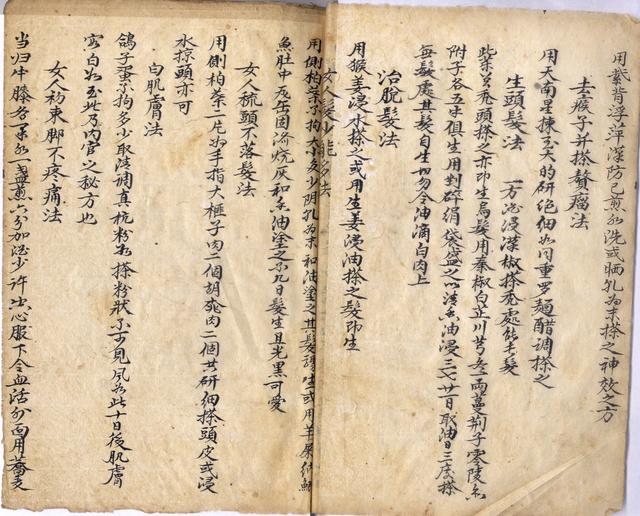 用紫背浮萍深防已煎水洗或晒乳为末搽之神效之方
去瘊子并搽贅瘤法
用天南星揀至大的研絶细水问重罗麺醋調搽之
生頭髮法 一方浸漢椒搽秃處能長髮
此菜又秃頭搽之亦即生烏髮用秦椒白芷川芎各一両蔓荊子零陵香
附子各五录俱生用剉碎绢袋盛之以清香油浸之廿一日取油日三度搽
無髮處其髮自生切勿令油滴白肉上
治脱髮法
用猴姜浸水搽之或用生姜浸油搽之髮即生
女人髮少能多法
用側柏葉不拘大小多少阴乳为末和油塗之其髮骤生或用羊屎納鲫
魚肚中瓦缶固济烧灰和香油塗之不几日髮生且光黑可愛
女人梳頭不落髮法
用側柏葉二片如手指大榧子肉二個胡桃肉二個共研细搽頭皮或浸
水掠頭亦可
白肌膚法
鴿子蛋不拘多少取清調真杭粉水搽粉状不可見风如此十日後肌膚
窓白如玉此乃内官之秘方也
女人初束脚不疼痛法
当归牛膝各一录水一盏煎六分加酒少許出心服下令血活外面用蕎麦